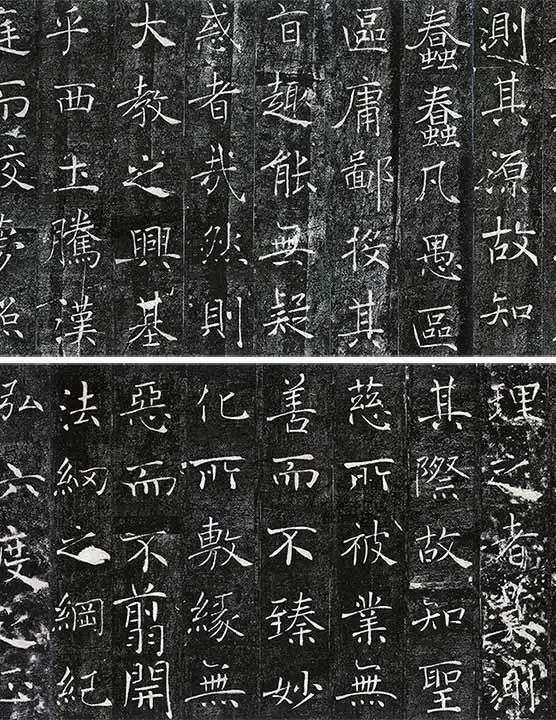 測其源故知
蠢蠢凡愚區
區庸鄙投其
旨趣能無疑
惑者哉然則
大教之興基
乎西土騰漢
庭而皎夢照
理之者莫測
其際故知聖
慈所被業無
善而不臻妙
化所敷緣無
惡而不翦開
法網之綱紀
弘六度之正